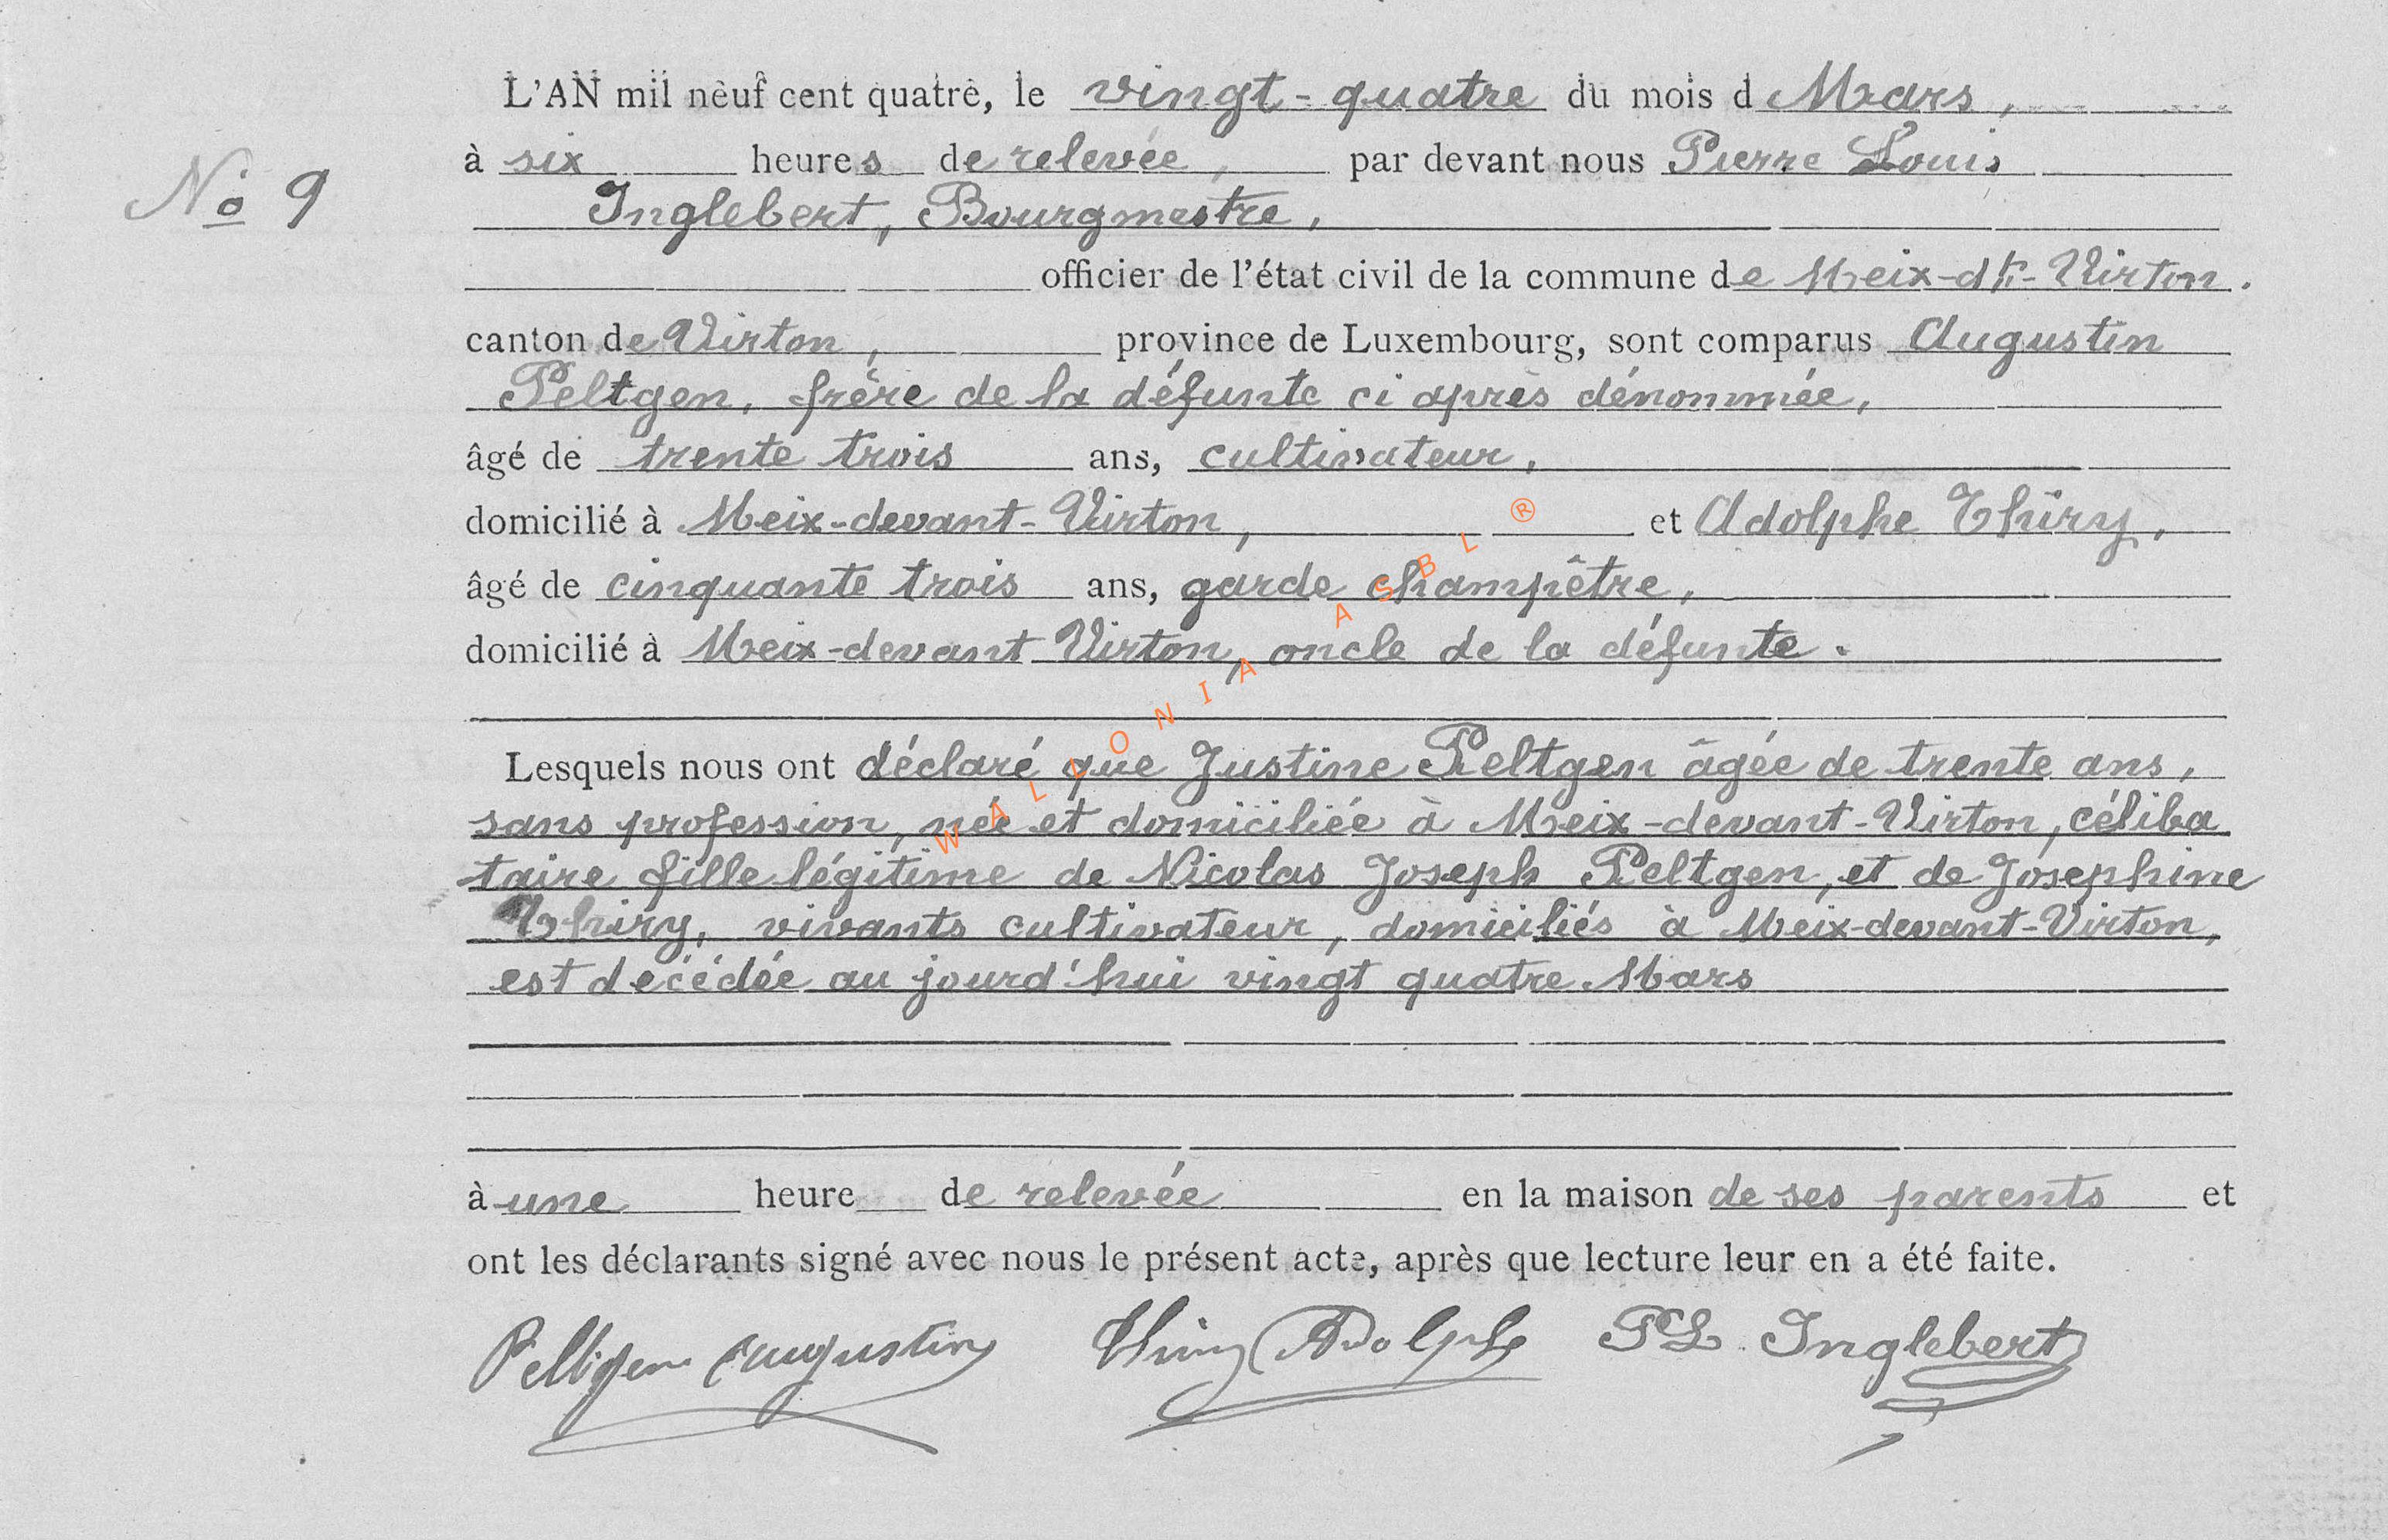 L'AN mil neuf cent quatre, le vingt-quatre du mois d Mars,
à six heures de relevée, par devant nous Pierre Louis
No 9
Inglebert, Bourgmestre,
officier de l'état civil de la commune de Meix-dt-Virton.
canton de Virton, province de Luxembourg, sont comparus Augustin
Peltgen, frère de la défunte ci après dénommée,
âgé de trente trois ans, cultivateur,
domicilié à Meix-devant-Virton, et Adolphe Thiry,
âgé de cinquante trois ans, garde champêtre,
domicilié à Meix-devant Virton, oncle de la défunte.
Lesquels nous ont déclaré que Justine Peltgen âgée de trente ans,
sans profession, née et domiciliée à Meix-devant-Virton, céliba
taire fille légitime de Nicolas Joseph Peltgen, et de Josephine
Thiry, vivants cultivateur, domiciliés à Meix-devant-Virton,
est décédée au jourd'hui vingt quatre Mars
à une heure de relevée en la maison de ses parents et
ont les déclarants signé avec nous le présent acte, après que lecture leur en a été faite.
Peltgen Augustin Thiry Adolphe PL Inglebert
WALLONIA ASBL ®